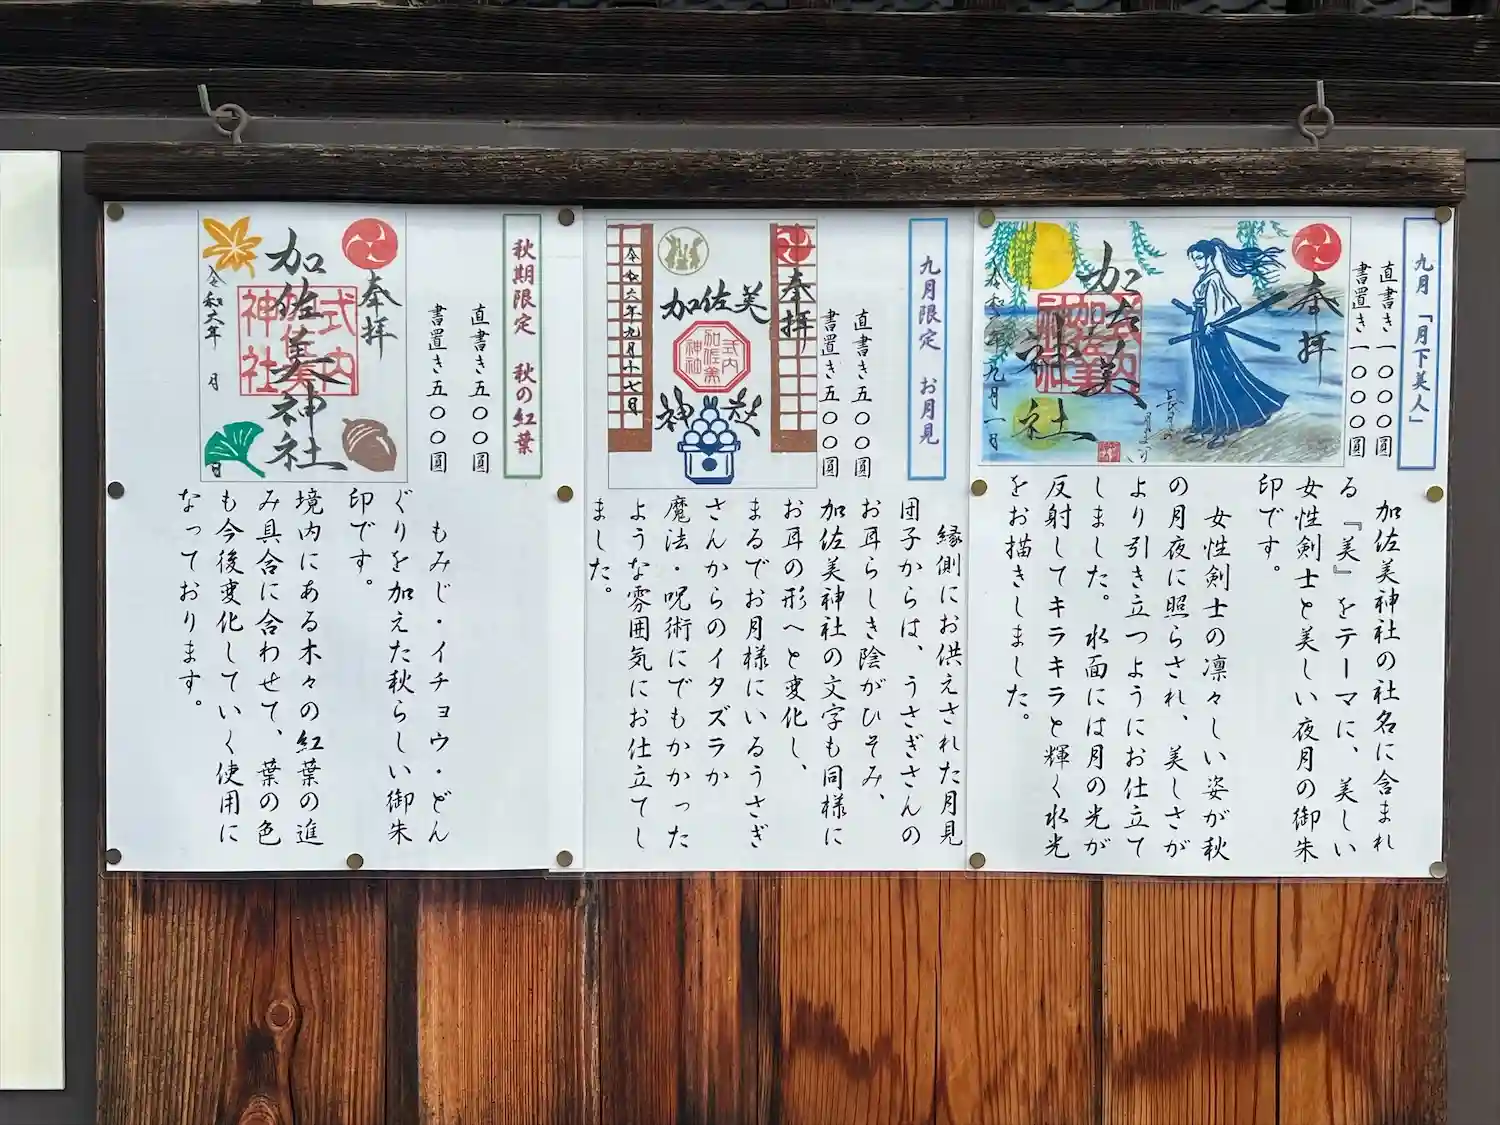 九月「月下美人」
直書き一〇〇〇圓
書置き一〇〇〇圓
奉拝
加佐美
神社
加佐美神社の社名に含まれ
る『美』をテーマに、美しい
女性剣士と美しい夜月の御朱
印です。
女性剣士の凛々しい姿が秋
の月夜に照らされ、美しさが
より引き立つようにお仕立て
しました。水面には月の光が
反射してキラキラと輝く水光
をお描きしました。
九月限定 お月見
直書き五〇〇圓
書置き五〇〇圓
奉拝
加佐美
神社
式内
加佐美
神社
令和六年九月十七日
縁側にお供えされた月見
団子からは、うさぎさんの
お耳らしき陰がひそみ、
加佐美神社の文字も同様に
お耳の形へと変化し、
まるでお月様にいるうさぎ
さんからのイタズラか
魔法・呪術にでもかかった
ような雰囲気にお仕立てし
ました。
秋期限定 秋の紅葉
直書き五〇〇圓
書置き五〇〇圓
奉拝
加佐美神社
式内
神社
令和六年 月 日
もみじ・イチョウ・どん
ぐりを加えた秋らしい御朱
印です。
境内にある木々の紅葉の進
み具合に合わせて、葉の色
も今後変化していく使用に
なっております。